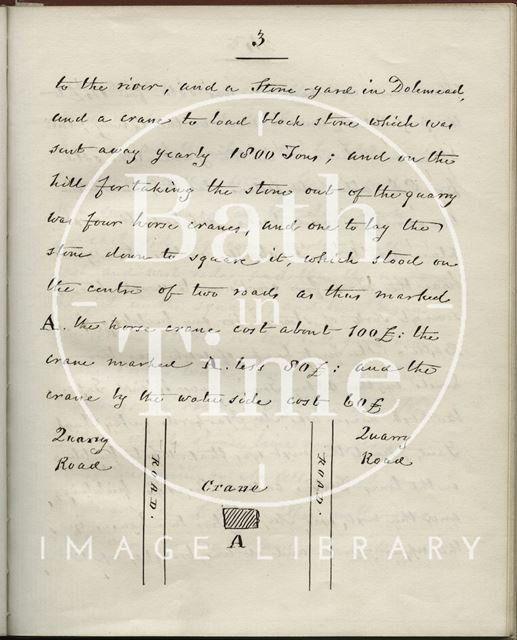 3
to the river, and a Stone-yard in Dolemead,
and a crane to load block stone which was
sent away yearly 1800 Tons; and on the
hill for taking the stone out of the quarry
was four horse cranes, and one to lay the
stone down to square it, which stood on
the centre of two roads as thus marked
A. the horse crane cost about 100£: the
crane marked A. less 80£: and the
crane by the water side cost 60£
Quarry Quarry
Road Road
ROAD. ROAD.
Crane
A
Bath
in
Time
IMAGE LIBRARY